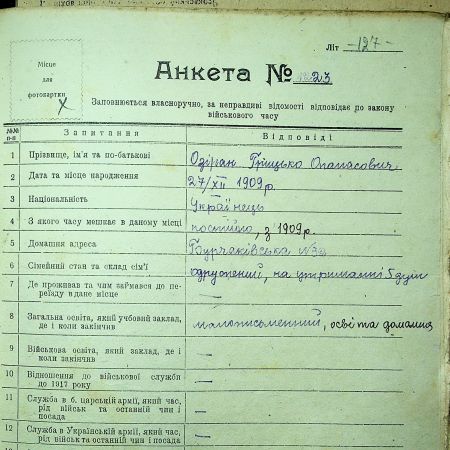 Літ —127—
Місце
для
фотокартки
Анкета № 1223
Заповнюється власноручно, за неправдиві відомості відповідає по закону
військового часу
№№
п-п
Запитання
Відповіді
1 Прізвище, ім'я та по-батькові Грицько Опанасович
2 Дата та місце народження 27/XII 1909 р.
3 Національність Українець
4 З якого часу мешкає в даному місці постійно, з 1909 р.
5 Домашня адреса Бурчаківська
6 Сімейний стан та склад сім'ї одружений, на утриманні 5 душ
7 Де проживав та чим займався до пе-
реїзду в дане місце —
8 Загальна освіта, який учбовий заклад,
де і коли закінчив малописьменний, освіта домашня
9 Військова освіта, який заклад, де і
коли закінчив —
10 Відношення до військової служби
до 1917 року —
11 Служба в б. царській армії, який час,
рід військ та останній чин і
посада —
12 Служба в Українській армії, який час,
рід військ та останній чин і посада —